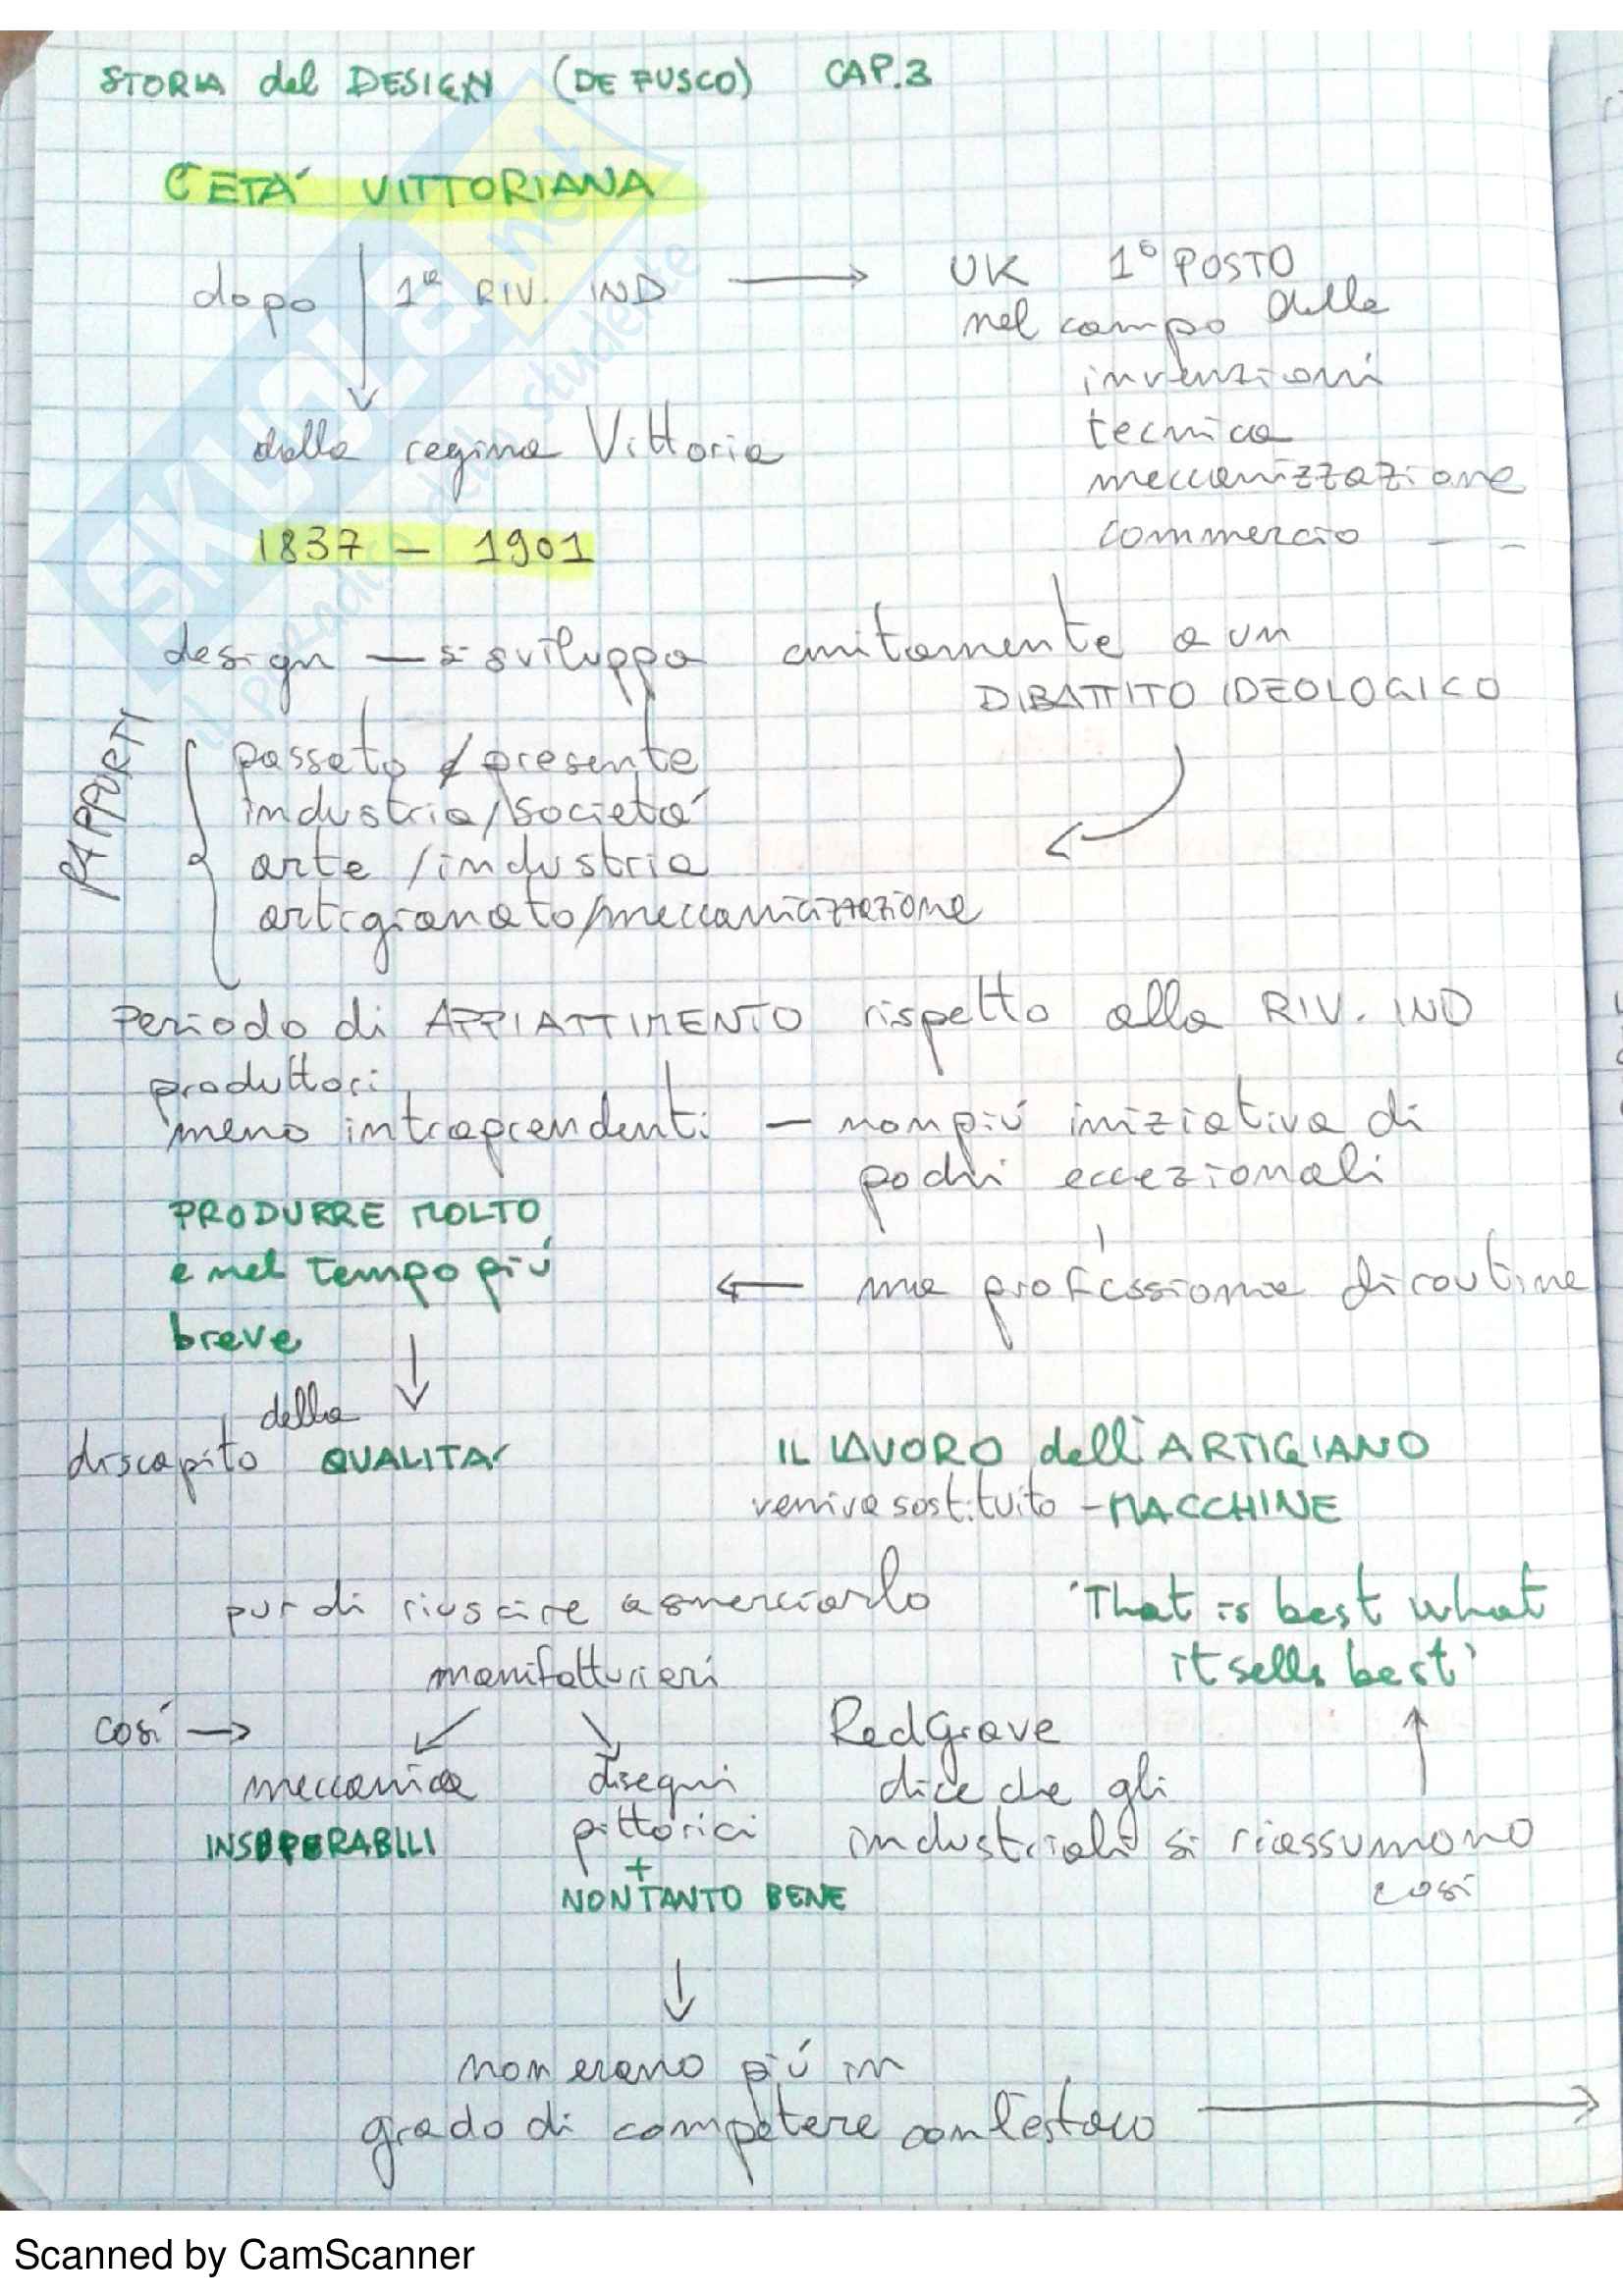 STORIA del DESIGN (DE FUSCO) CAP.3
L'ETA' VITTORIANA
dopo 1ª RIV. IND
UK 1° POSTO
nel campo delle
invenzioni
tecnica
meccanizzazione
commercio
della regina Vittoria
1837 – 1901
design — si sviluppa unitamente a un
DIBATTITO IDEOLOGICO
RAPPORTI
passato / presente
industria/società
arte /industria
artigianato/meccanicizzazione
Periodo di APPIATTIMENTO rispetto alla RIV. IND
produttori
meno intraprendenti — non più iniziativa di
pochi eccezionali
PRODURRE MOLTO
e nel tempo più
breve
ma professione di routine
discapito della QUALITA'
IL LAVORO dell'ARTIGIANO
veniva sostituito - MACCHINE
pur di riuscire a smerciarlo
'That is best what
it sells best'
manifatturieri
così
meccanica
INSUPERABILI
disegni
pittorici
+
NON TANTO BENE
RedGrave
dice che gli
industriali si riassumono
così
non erano più in
grado di competere con l'estero
SKUOLA.net
il paradiso dello studente
Scanned by CamScanner